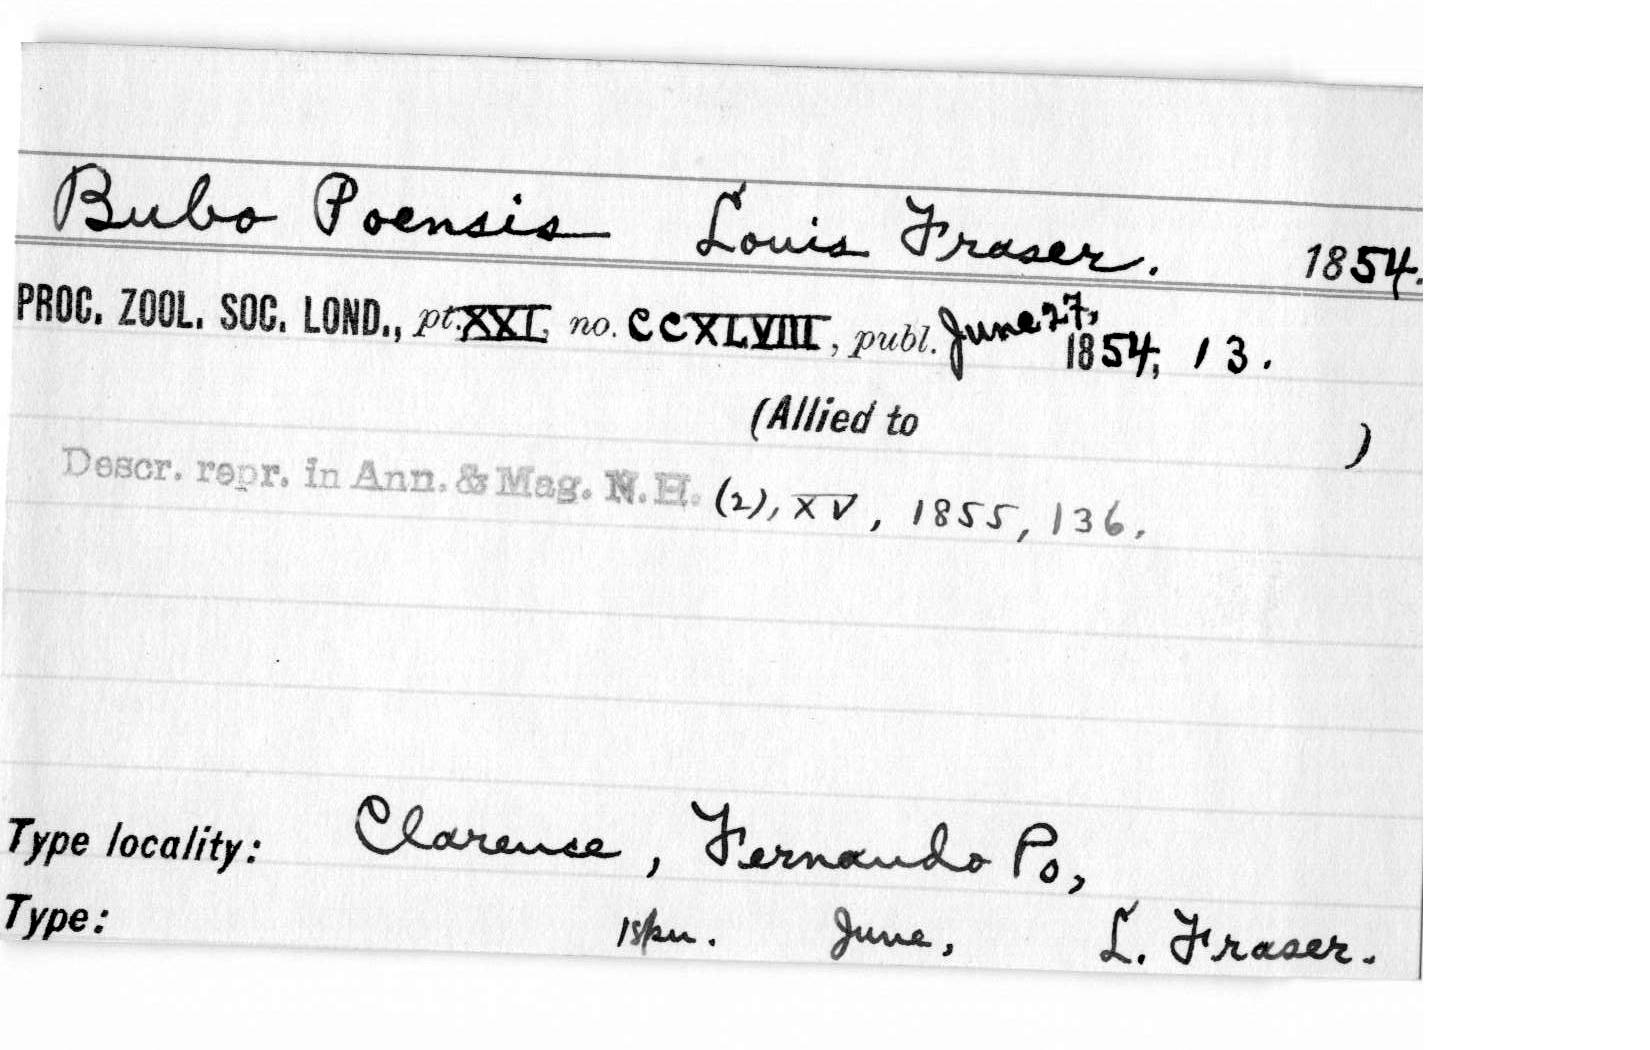 Bubo Poensis Louis Fraser. 1854.
PROC. ZOOL. SOC. LOND., pt. XXI, no. CCXLVIII, publ. June 27, 1854, 13.
(Allied to )
Descr. repr. in Ann. & Mag. N.H. (2), XV, 1855, 136.
Type locality: Clarence, Fernando Po,
Type: 1 spn. June, L. Fraser.